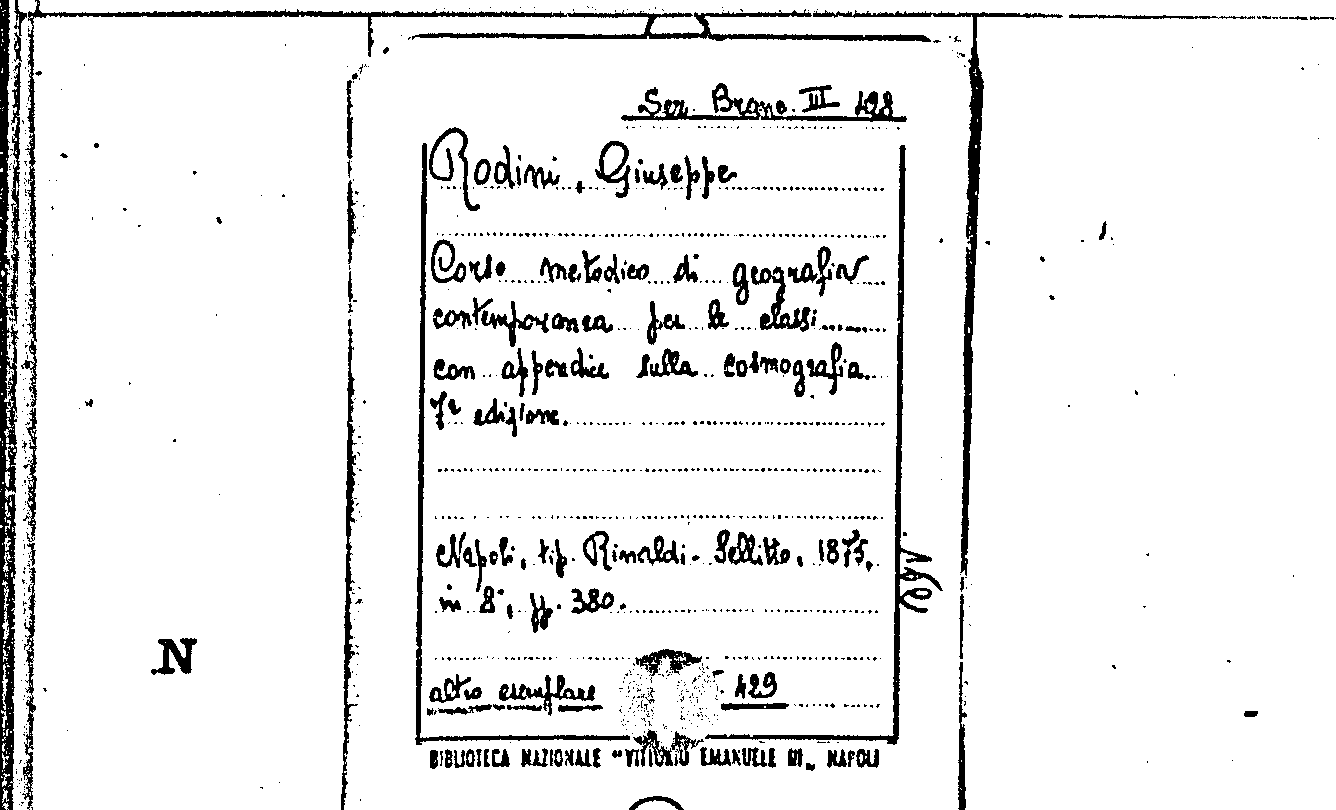 Ser. Branc. III 428
Rodini, Giuseppe
Corso metodico di geografia
contemporanea per le classi......
con appendice sulla cosmografia.
7ª edizione.
Napoli, tip. Rinaldi-Sellitto, 1875,
in 8°, pp. 380.
altro esemplare 429
BIBLIOTECA NAZIONALE "VITTORIO EMANUELE III„ NAPOLI
N